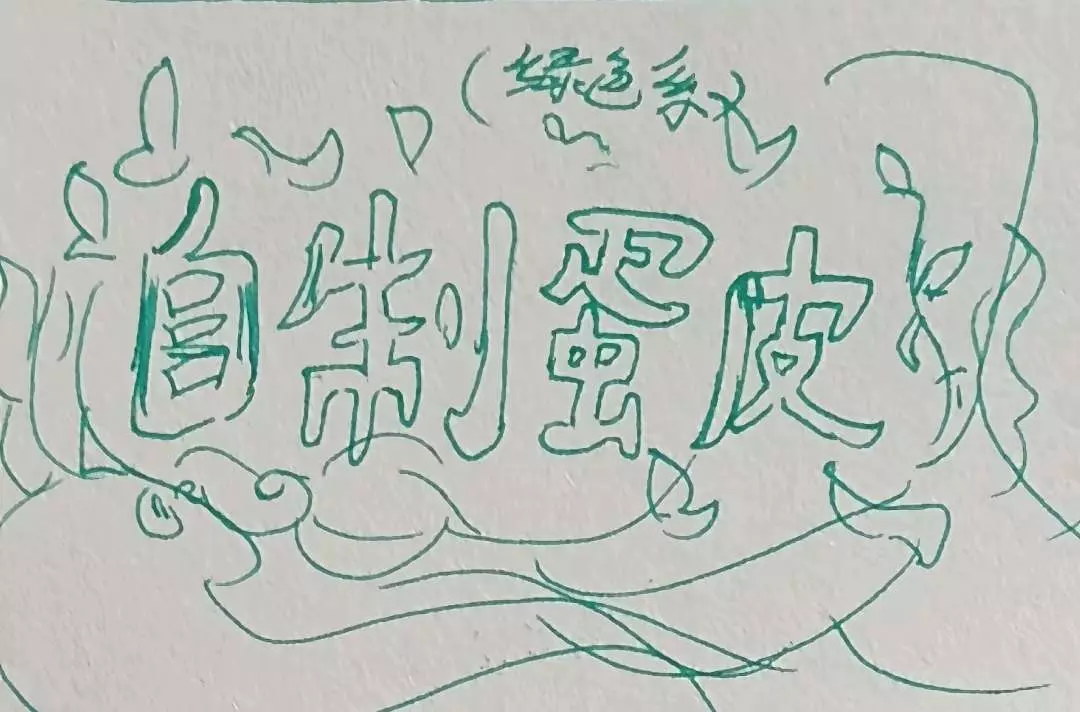 (绿色系)
自制蛋皮